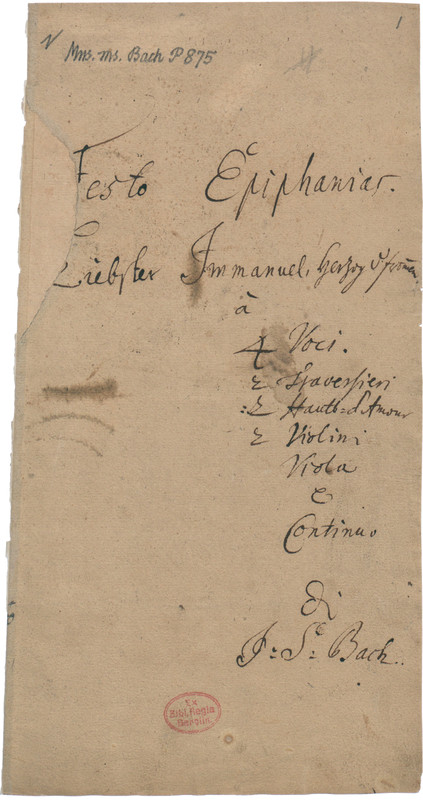 1
N Mus. ms. Bach P 875
Festo Epiphanias.
Liebster Immanuel, Herzog der frommen.
à
4 Voci.
2 Traversieri
2 Hautb: d'Amour
2 Violini
Viola
e
Continuo
di
J. S. Bach.
Ex
Bibl. Regia
Berolin.